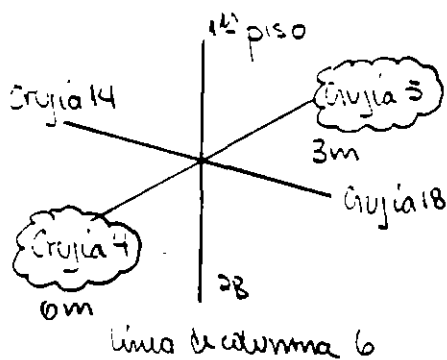 1er piso
Crujía 14
Crujía 5
3m
Crujía 18
Crujía 4
6m
PB
línea de columna 6